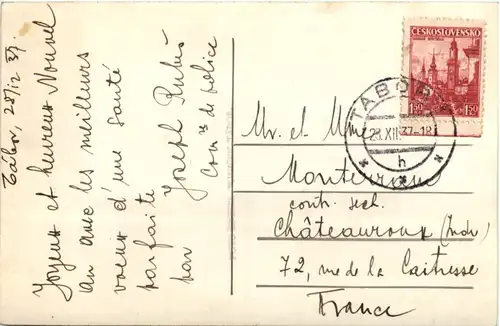 Tábor, 28/12 37.
Joyeux et heureux Nouvel
An avec les meilleurs
voeux d'une santé
parfaite
par Joseph
de police
ČESKOSLOVENSKO
1.50 1.50
TÁBOR
28.XII.37-18
h
Mr. et Mme
Monterrion
contr. sech.
Châteauroux (Indre)
72, rue de la Caitresse
France